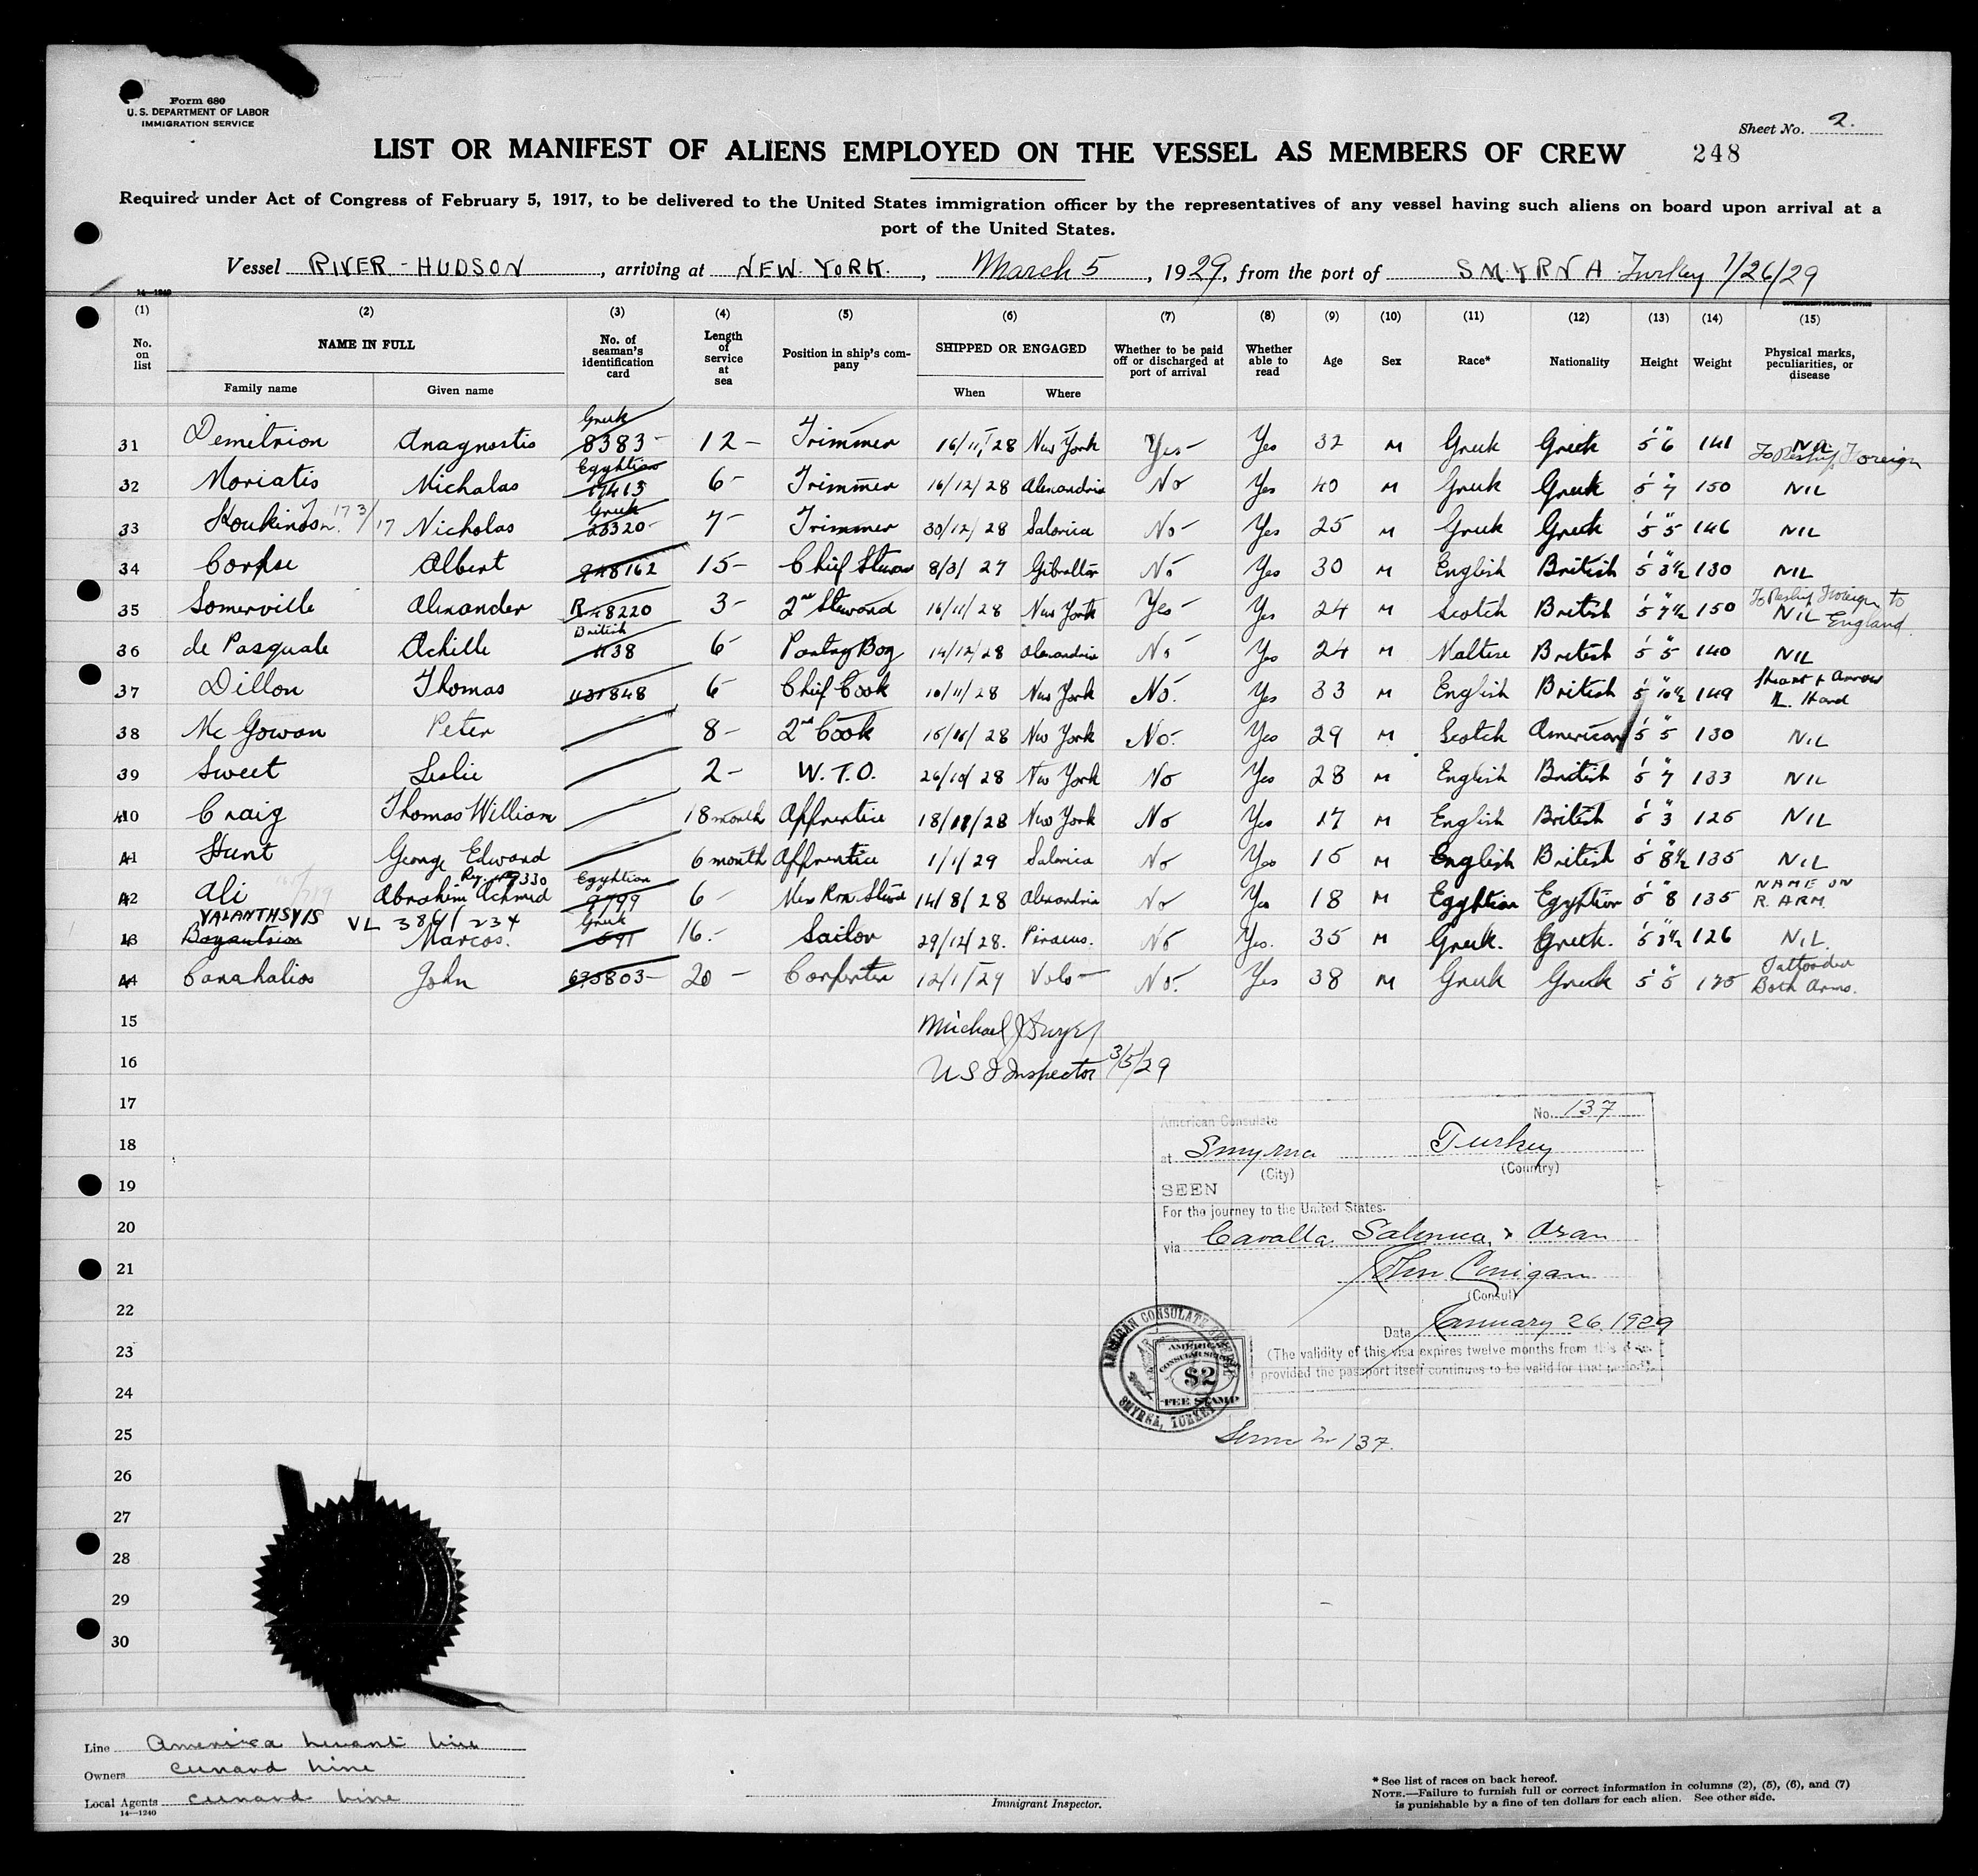 Form 680
U. S. DEPARTMENT OF LABOR
IMMIGRATION SERVICE
Sheet No. 2.
LIST OR MANIFEST OF ALIENS EMPLOYED ON THE VESSEL AS MEMBERS OF CREW 248
Required under Act of Congress of February 5, 1917, to be delivered to the United States immigration officer by the representatives of any vessel having such aliens on board upon arrival at a
port of the United States.
Vessel RIVER-HUDSON, arriving at NEW YORK., March 5, 1929, from the port of SMYRNA Turkey 1/26/29
14—1240
(1) (2) (3) (4) (5) (6) (7) (8) (9) (10) (11) (12) (13) (14) (15)
No. on list NAME IN FULL Family name Given name No. of seaman's identification card Length of service at sea Position in ship's company SHIPPED OR ENGAGED When Where Whether to be paid off or discharged at port of arrival Whether able to read Age Sex Race* Nationality Height Weight Physical marks, peculiarities, or disease
31 Demetrion Anagnostis Greek 8383- 12- Trimmer 16/11/28 New York Yes- Yes 32 M Greek Greek 5' 6" 141 Nil To Reship Foreign
32 Moriatis Nichalas Egyhtian 17413 6- Trimmer 16/12/28 Alexandria No Yes 40 M Greek Greek 5' 7" 150 NIL
33 Nicholas Greek 23320- 7- Trimmer 30/12/28 Salonica No- Yes 25 M Greek Greek 5' 5" 146 NIL
34 Corpse Albert 948162 15- Chief Steward 8/3/27 Gibralter No Yes 30 M English British 5' 3½" 130 NIL
35 Somerville Alexander R48220 3- 2nd Steward 16/11/28 New York Yes- Yes 24 M Scotch British 5' 7½" 150 To Reship Foreign to England NIL
36 de Pasquale Achille British 1138 6- Pantry Boy 14/12/28 Alexandria No Yes 24 M Maltese British 5' 5" 140 NIL
37 Dillon Thomas 1131848 6- Chief Cook 16/11/28 New York No. Yes 33 M English British 5' 10½" 149 Heart & Arrow L. Hand
38 Mc Gowan Peter 8- 2nd Cook 15/11/28 New York No. Yes 29 M Scotch American 5' 5" 130 NIL
39 Sweet Leslie 2- W.T.O. 26/10/28 New York No Yes 28 M English British 5' 7" 133 NIL
40 Craig Thomas William 18 month Apprentice New York No Yes 17 M English British 5' 3" 125 NIL
41 Hunt George Edward 6 month Apprentice 1/1/29 Salonica No Yes 15 M English British 5' 8½" 135 NIL
42 Ali Abrahim Achmed Egyhtian 9799 6- Mess Rm. Steward 14/8/28 Alexandria No Yes 18 M Egyhtian Egyhtian 5' 8" 135 NAME ON R. ARM.
VALANTHSVIS VL 386/1234
43 Boyantsion Marcos. Greek 591 16.- Sailor 29/12/28. Piraeus. No Yes. 35 M Greek. Greek. 5' 3½" 126 NIL.
44 Canahalios John 635803- 20- Carpenter 12/1/29 Volo- No. Yes 38 M Greek Greek 5' 5" 175 Tattooed on Both Arms.
15 Michael J
16 U S I Inspector 3/5/29
17
18
19
20
21
22
23
24
25
26
27
28
29
30
American Consulate No. 137
at Smyrna Turkey
(City) (Country)
SEEN
For the journey to the United States.
via Cavalla, Salonica, & Oran
John Corrigan
(Consul)
Date January 26, 1929
(The validity of this visa expires twelve months from this date
provided the passport itself continues to be valid for that period).
AMERICAN CONSULATE
SMYRNA, TURKEY
AMERICAN
CONSULAR SERVICE
$2
FEE STAMP
137.
Line America Levant Line
Owners Cunard Line
Local Agents Cunard Line
14—1240
Immigrant Inspector.
* See list of races on back hereof.
NOTE.—Failure to furnish full or correct information in columns (2), (5), (6), and (7)
is punishable by a fine of ten dollars for each alien. See other side.